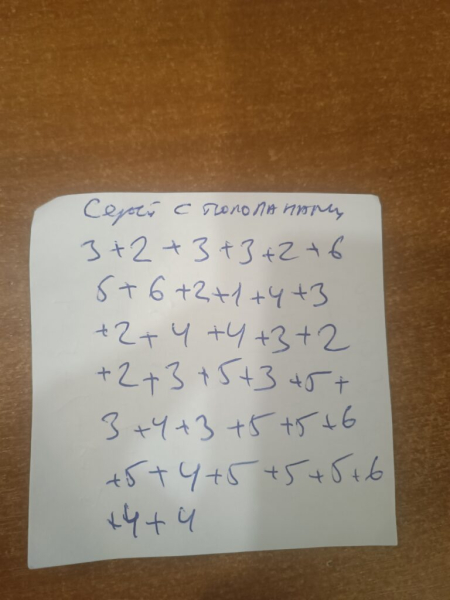 с
3+2+3+3+2+6
5+6+2+1+4+3
+2+4+4+3+2
+2+3+5+3+5+
3+4+3+5+5+6
+5+4+5+5+5+6
+4+4